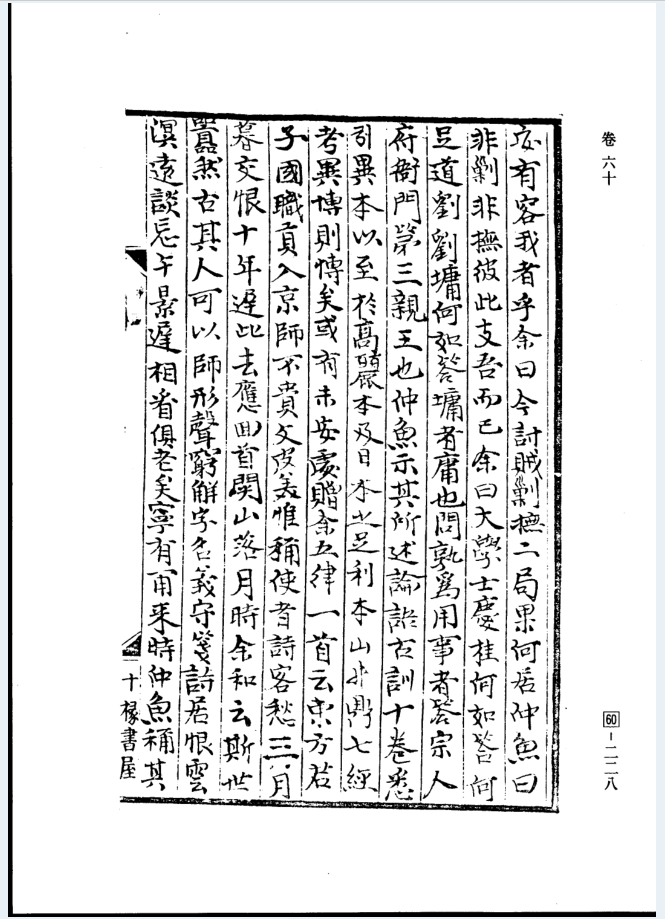 卷六十
60－二二八
安有容我者乎余曰今討賊剿撫二局果何居仲魚曰
非剿非撫彼此支吾而已余曰大學士慶桂何如答何
足道劉劉墉何如答墉者庸也問孰爲用事者答宗人
府衙門第三親王也仲魚示其所述論語古訓十卷悉
引異本以至於高麗本及日本之足利本山井鼎七經
考異博則博矣或有未安處贈余五律一首云東方君
子國職貢入京師不貴文皮美惟稱使者詩客愁三月
暮交恨十年遲此去應回首関山落月時余和云斯世
囂然古其人可以師形聲窮解字名義守箋詩居恨雲
溟遠談忘午景遲相看俱老矣寧有再來時仲魚稱其
十橡書屋